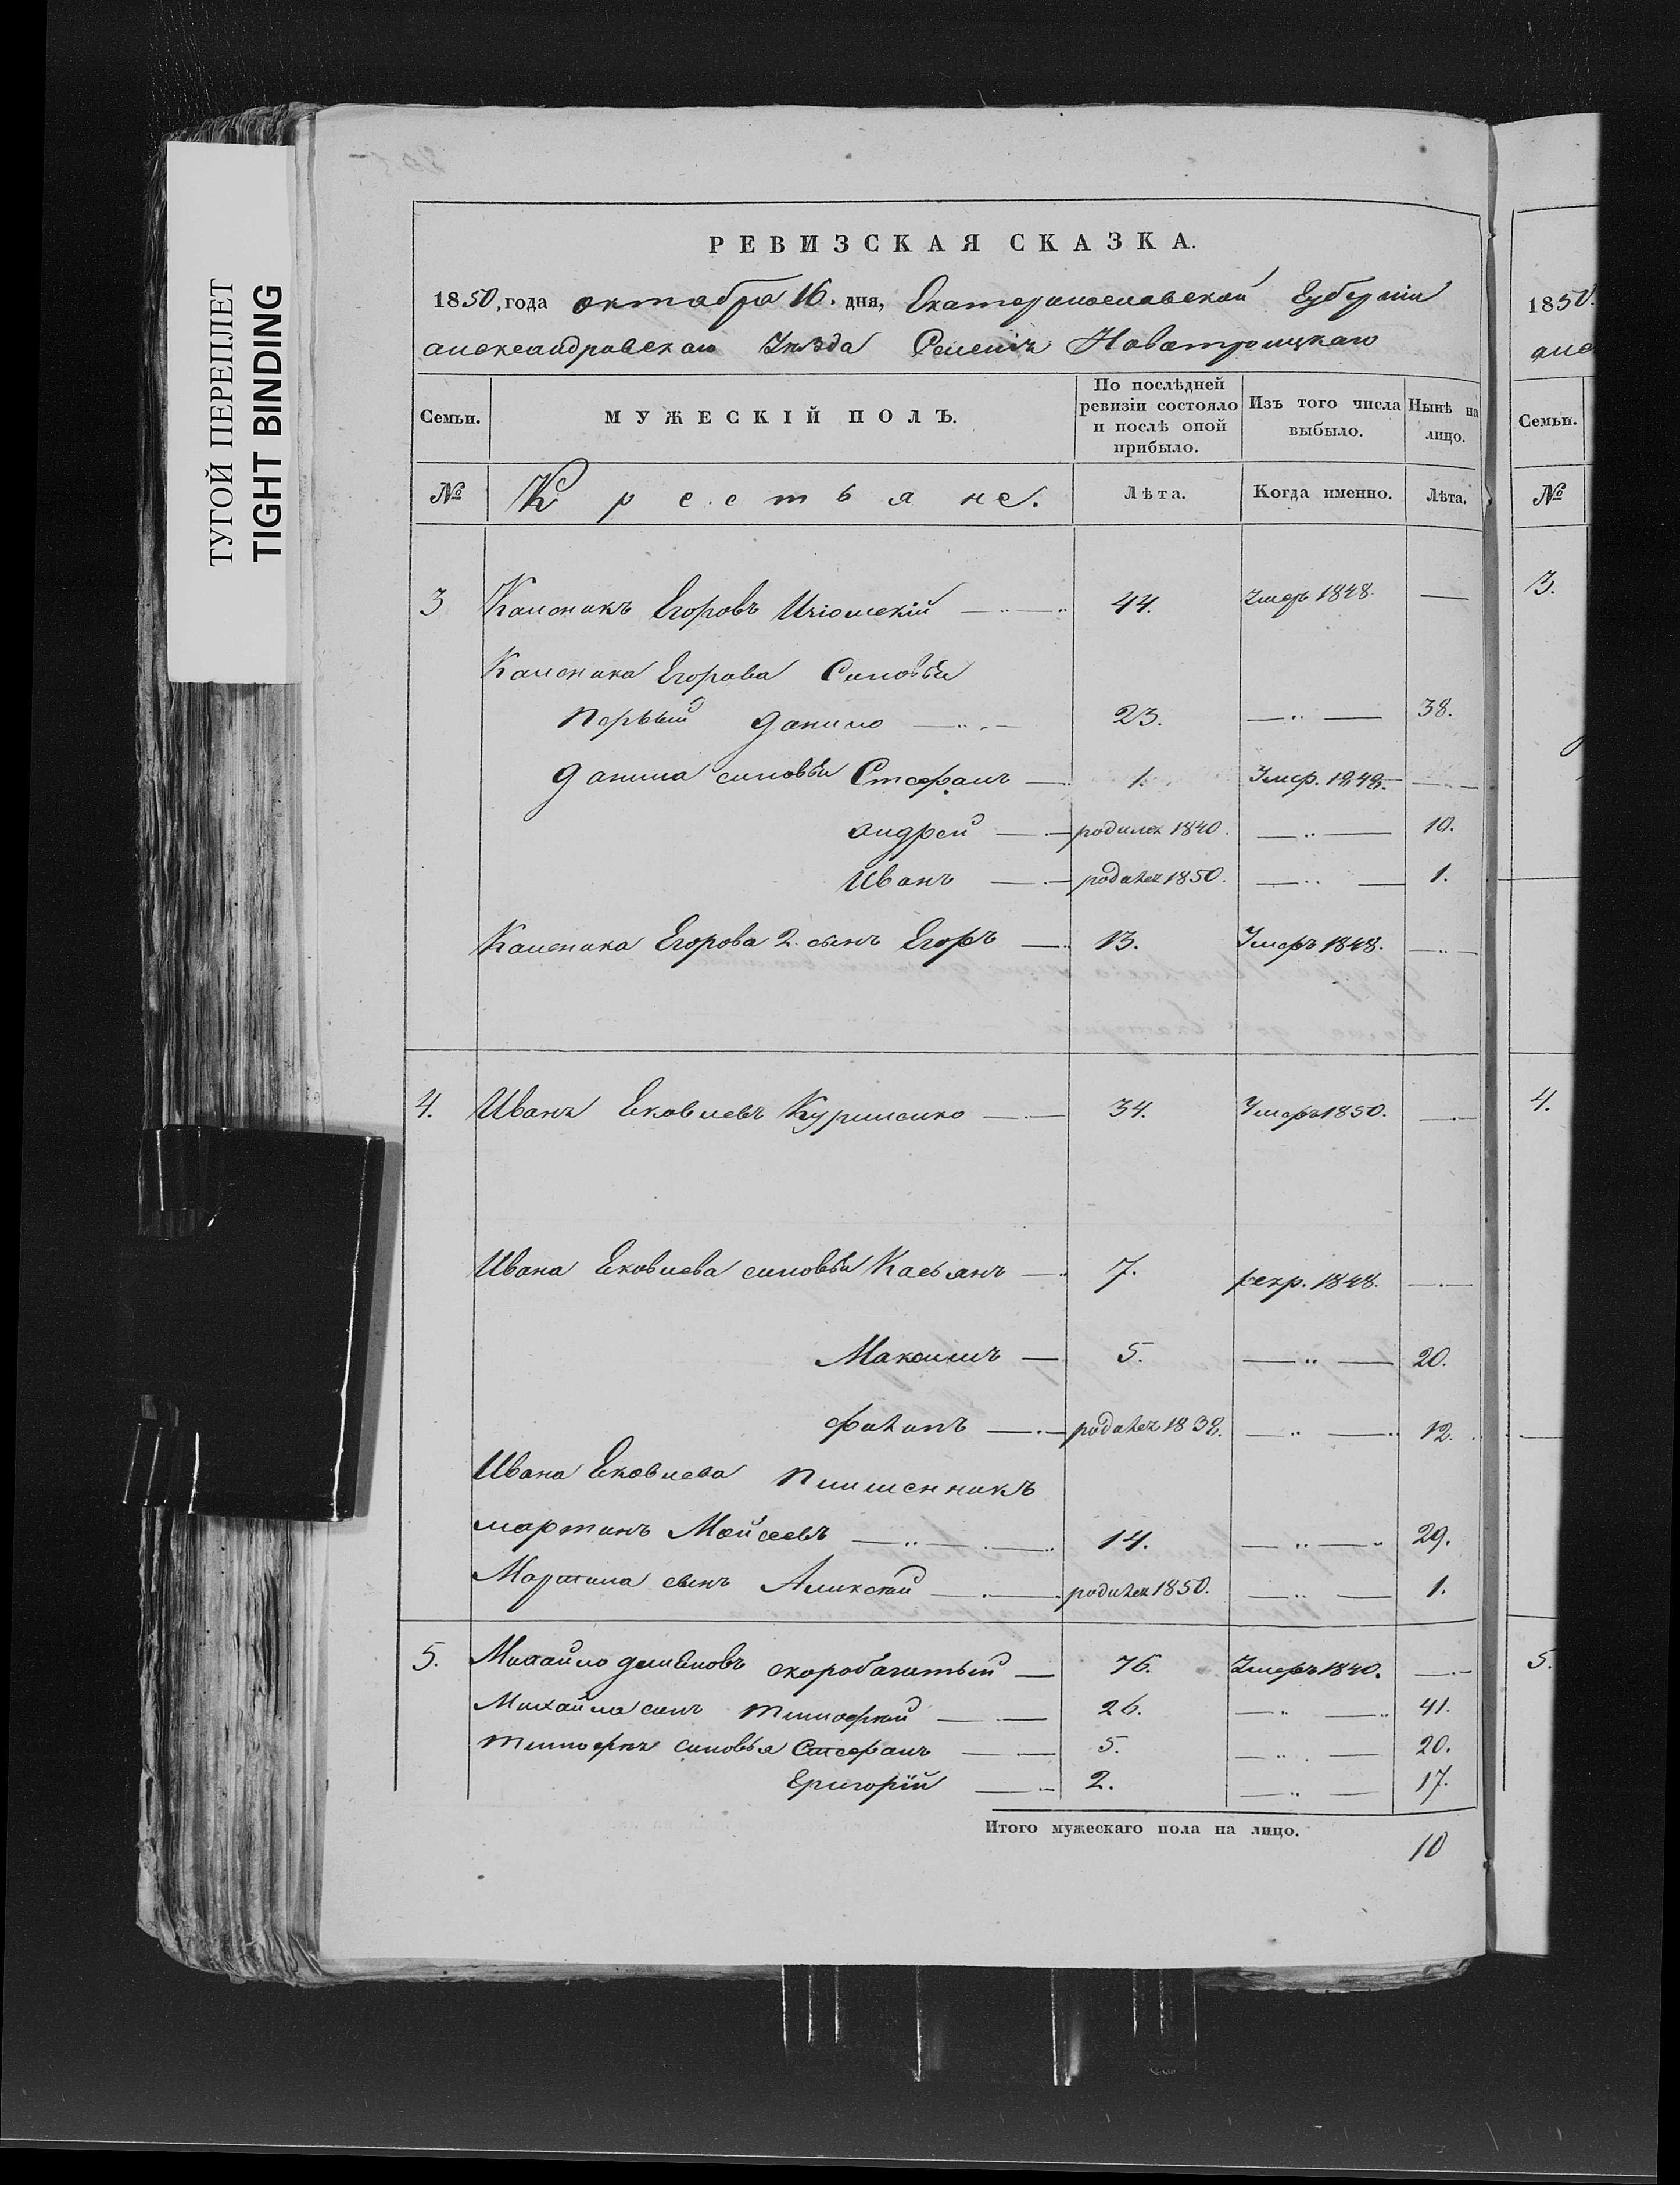 ТУГОЙ ПЕРЕПЛЕТ
TIGHT BINDING
РЕВИЗСКАЯ СКАЗКА.
1850, года октабра 16. дня, Екатеринославской Губерніи
александровскаго Уѣзда Селеніе Новотроицкаго
Семьи.
МУЖЕСКІЙ ПОЛЪ.
По послѣдней ревизіи состояло и послѣ оной прибыло.
Изъ того числа выбыло.
Нынѣ на лицо.
№ Крестьяне. Лѣта. Когда именно. Лѣта.
3 Каленикъ Егоровъ 44. Умеръ 1848. —
Каленика Егорова Сыновьи
первый данило 23. — 38.
данила сыновьи Стефанъ 1. Умер. 1848. —
андрей родилсх 1840. — 10.
Иванъ родился 1850. — 1.
Каленика Егорова 2. сынъ Егоръ 13. Умеръ 1848. —
4. Иванъ Яковлевъ Куришенко 34. Умеръ 1850. —
Ивана Яковлева сыновьи Касьянъ 7. рекр. 1848. —
Максимъ 5. — 20.
родился 1838. — 12.
Ивана Яковлева
мартинъ Мойсеевъ 14. — 29.
Мартина сынъ Аликсей родился 1850. — 1.
5. Михайло демяновъ скоробагатый 76. Умеръ 1840. —
Михайла сынъ тимофей 26. — 41.
тимофея сыновья Стефанъ 5. — 20.
Григорій 2. — 17.
Итого мужескаго пола на лицо. 10
1850.
але
Семьи.
№
3.
4.
5.